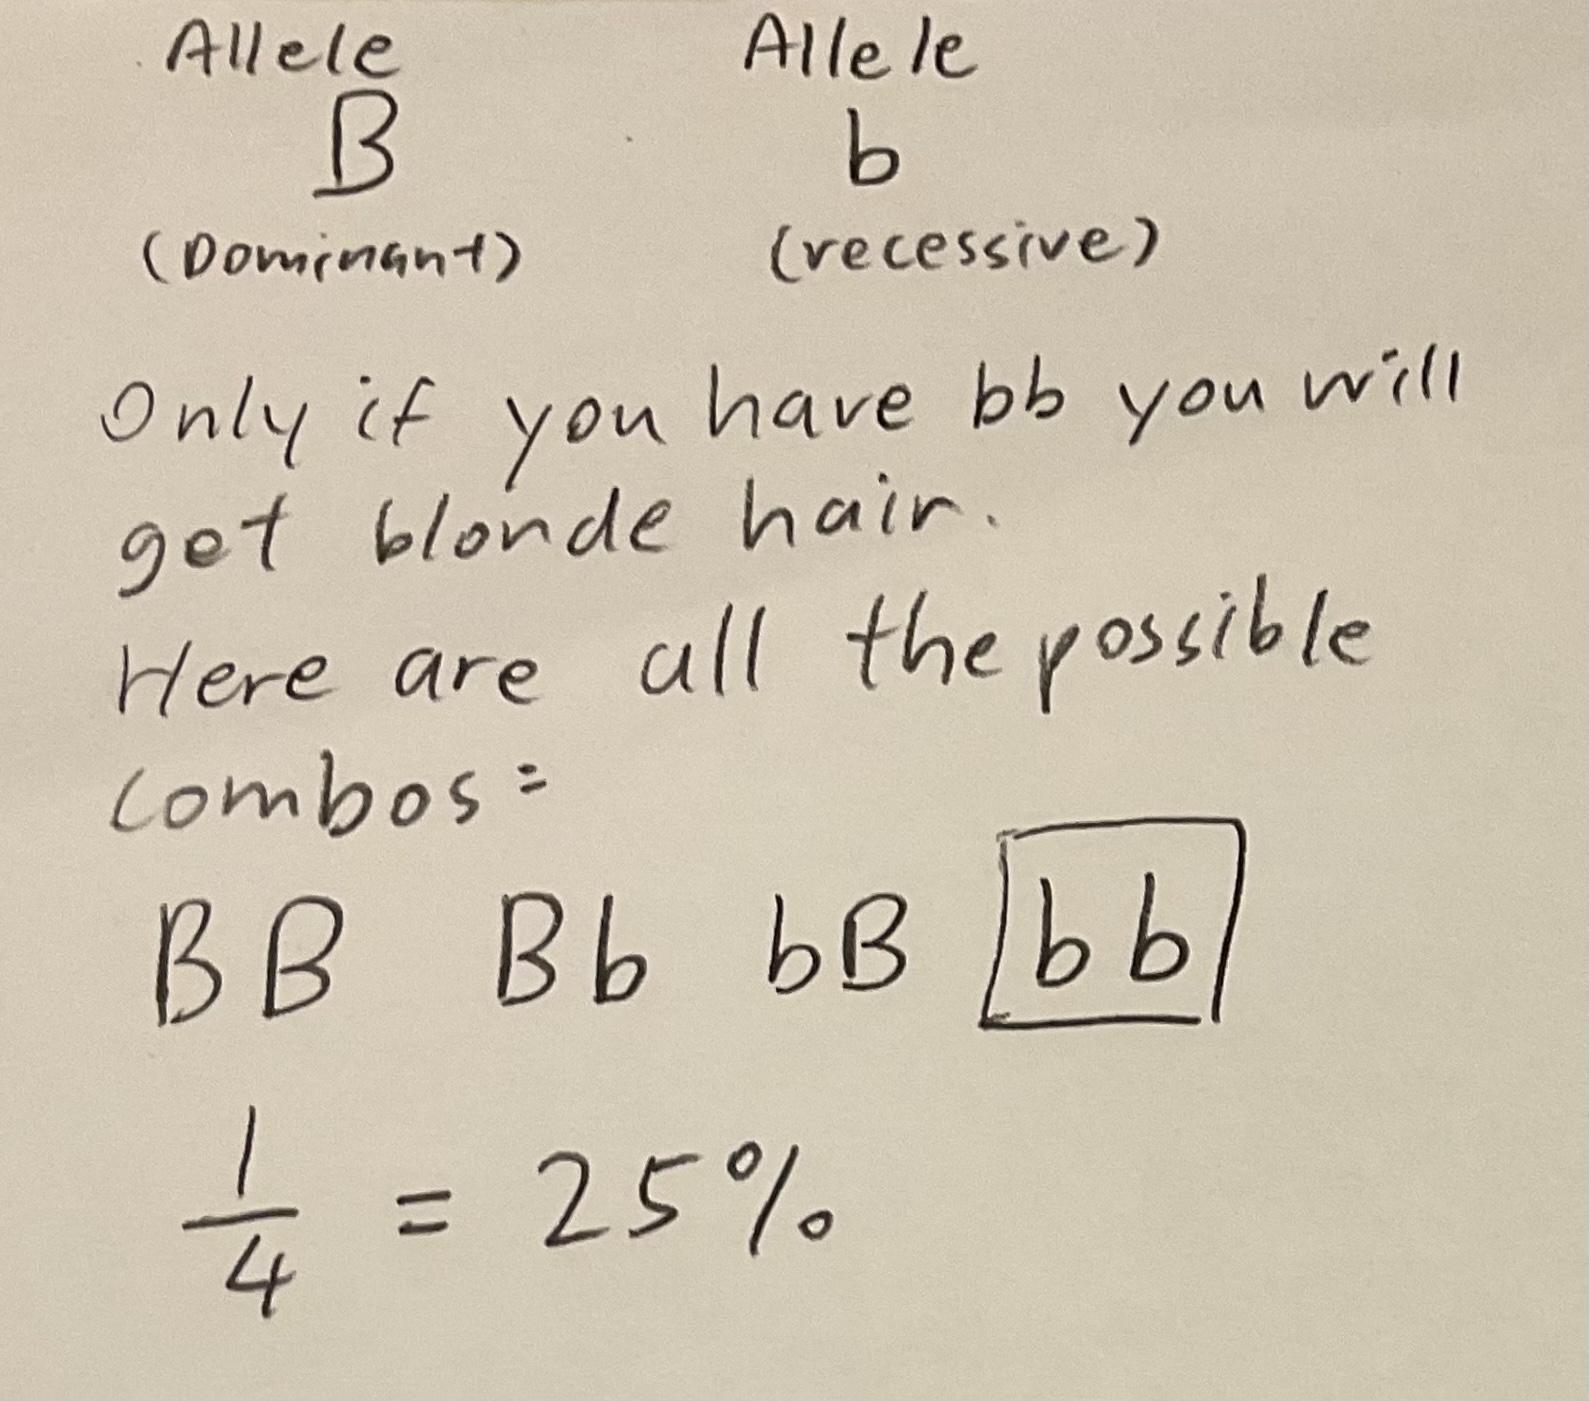 Allele Allele
B b
(Dominant) (recessive)
Only if you have bb you will
get blonde hair.
Here are all the possible
combos:
BB Bb bB bb
1/4 = 25%